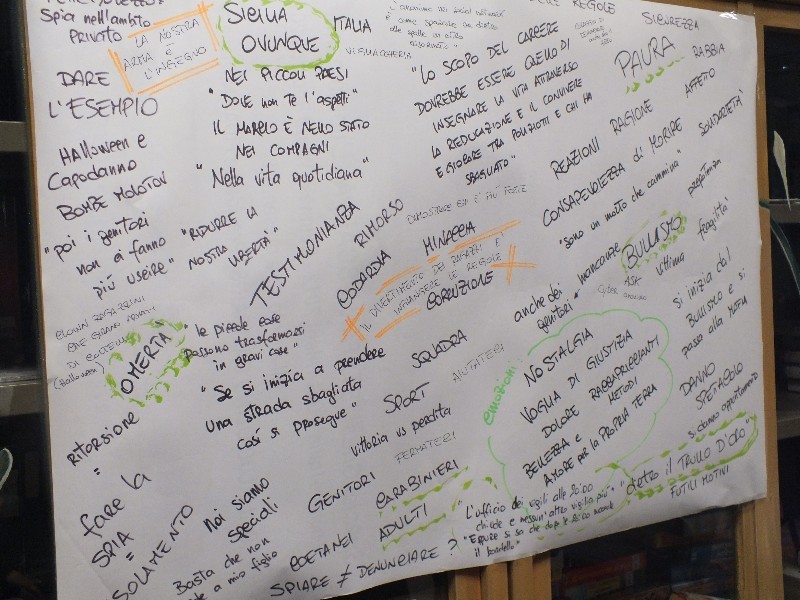 Spia nell'ambito
PRIVATO
LA NOSTRA
ARMA È
L'INSEGNO
SICILIA
OVUNQUE
ITALIA
VIGLIACCHERIA
REGOLE
SICUREZZA
DARE
L'ESEMPIO
NEI PICCOLI PAESI
"Dove non te l'aspetti"
IL MARCIO È NELLO STATO
NEI COMPAGNI
"Nella vita quotidiana"
"LO SCOPO DEL CARCERE
DOVREBBE ESSERE QUELLO DI
INSEGNARE LA VITA ATTRAVERSO
LA RIEDUCAZIONE E IL CONVIVERE
E GIOCARE TRA POLIZIOTTI E CHI HA
SBAGLIATO"
PAURA
RABBIA
AFFETTO
REAZIONI
RAGIONE
SOLIDARIETÀ
CONSAPEVOLEZZA di MORIRE
"sono un morto che cammina"
prepotenza
Halloween e
Capodanno
BOMBE MOLOTOV
"poi i genitori
non ci fanno
più uscire"
"RIDURRE LA
NOSTRA
LIBERTÀ"
TESTIMONIANZA
RIMORSO
DIMOSTRARE CHI È PIÙ FORTE
CODARDIA
MINACCIA
IL DIVERTIMENTO DEI RAGAZZI È
INFRANGERE LE REGOLE
CORRUZIONE
mancanze
anche dei
genitori"
BULLISMO
ASK
vittima
fragilità
si inizia dal
BULLISMO e si
passa alla MAFIA
CLOWN RAGAZZINI
CHE GIRANO ARMATI
DI COLTELLO
(Halloween)
OMERTÀ
"le piccole cose
possono trasformarsi
in gravi cose"
"Se si inizia a prendere
una strada sbagliata
così si prosegue"
SQUADRA
AIUTATECI
SPORT
vittoria vs perdita
FERMATECI
emozioni:
NOSTALGIA
VOGLIA DI GIUSTIZIA
DOLORE RACCAPRICCIANTI
METODI
BELLEZZA e
AMORE PER LA PROPRIA TERRA
DANNO
SPETTACOLO
si danno appuntamento
"dietro il TRULLO D'ORO"
FUTILI MOTIVI
RITORSIONE
=
fare la
SPIA
=
noi siamo
speciali
GENITORI
CARABINIERI
ADULTI
COETANEI
Basta che non
a mio figlio
SPIARE ≠ DENUNCIARE ?
"L'ufficio dei vigili alle 20:00
chiude e nessun'altro vigila più"
"Eppure si sa che dopo le 20:00 succede
il bordello"